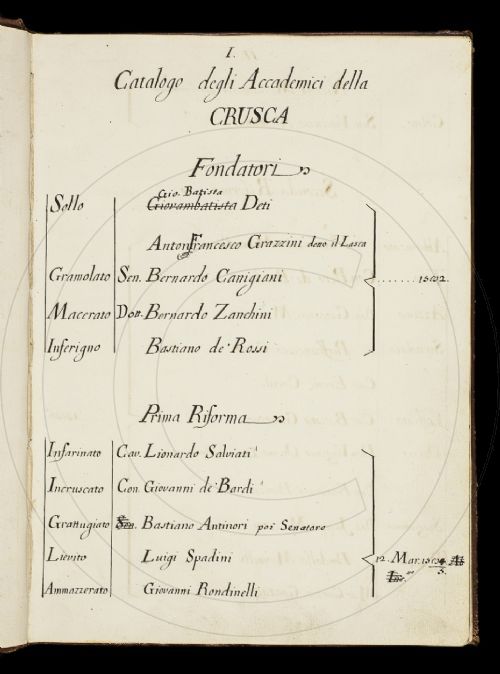 I.
Catalogo degli Accademici della
CRUSCA
Fondatori
Sollo Gio. Batista Giovambatista Deti
Anton Francesco Grazzini detto il Lasca
Gramolato Sen. Bernardo Canigiani ........ 1582.
Macerato Dott. Bernardo Zanchini
Inferigno Bastiano de' Rossi
Prima Riforma
Infarinato Cav. Lionardo Salviati
Incruscato Con. Giovanni de' Bardi
Grattugiato Sen. Bastiano Antinori poi Senatore
Lievito Luigi Spadini 12. Mar.
Ammazzerato Giovanni Rondinelli